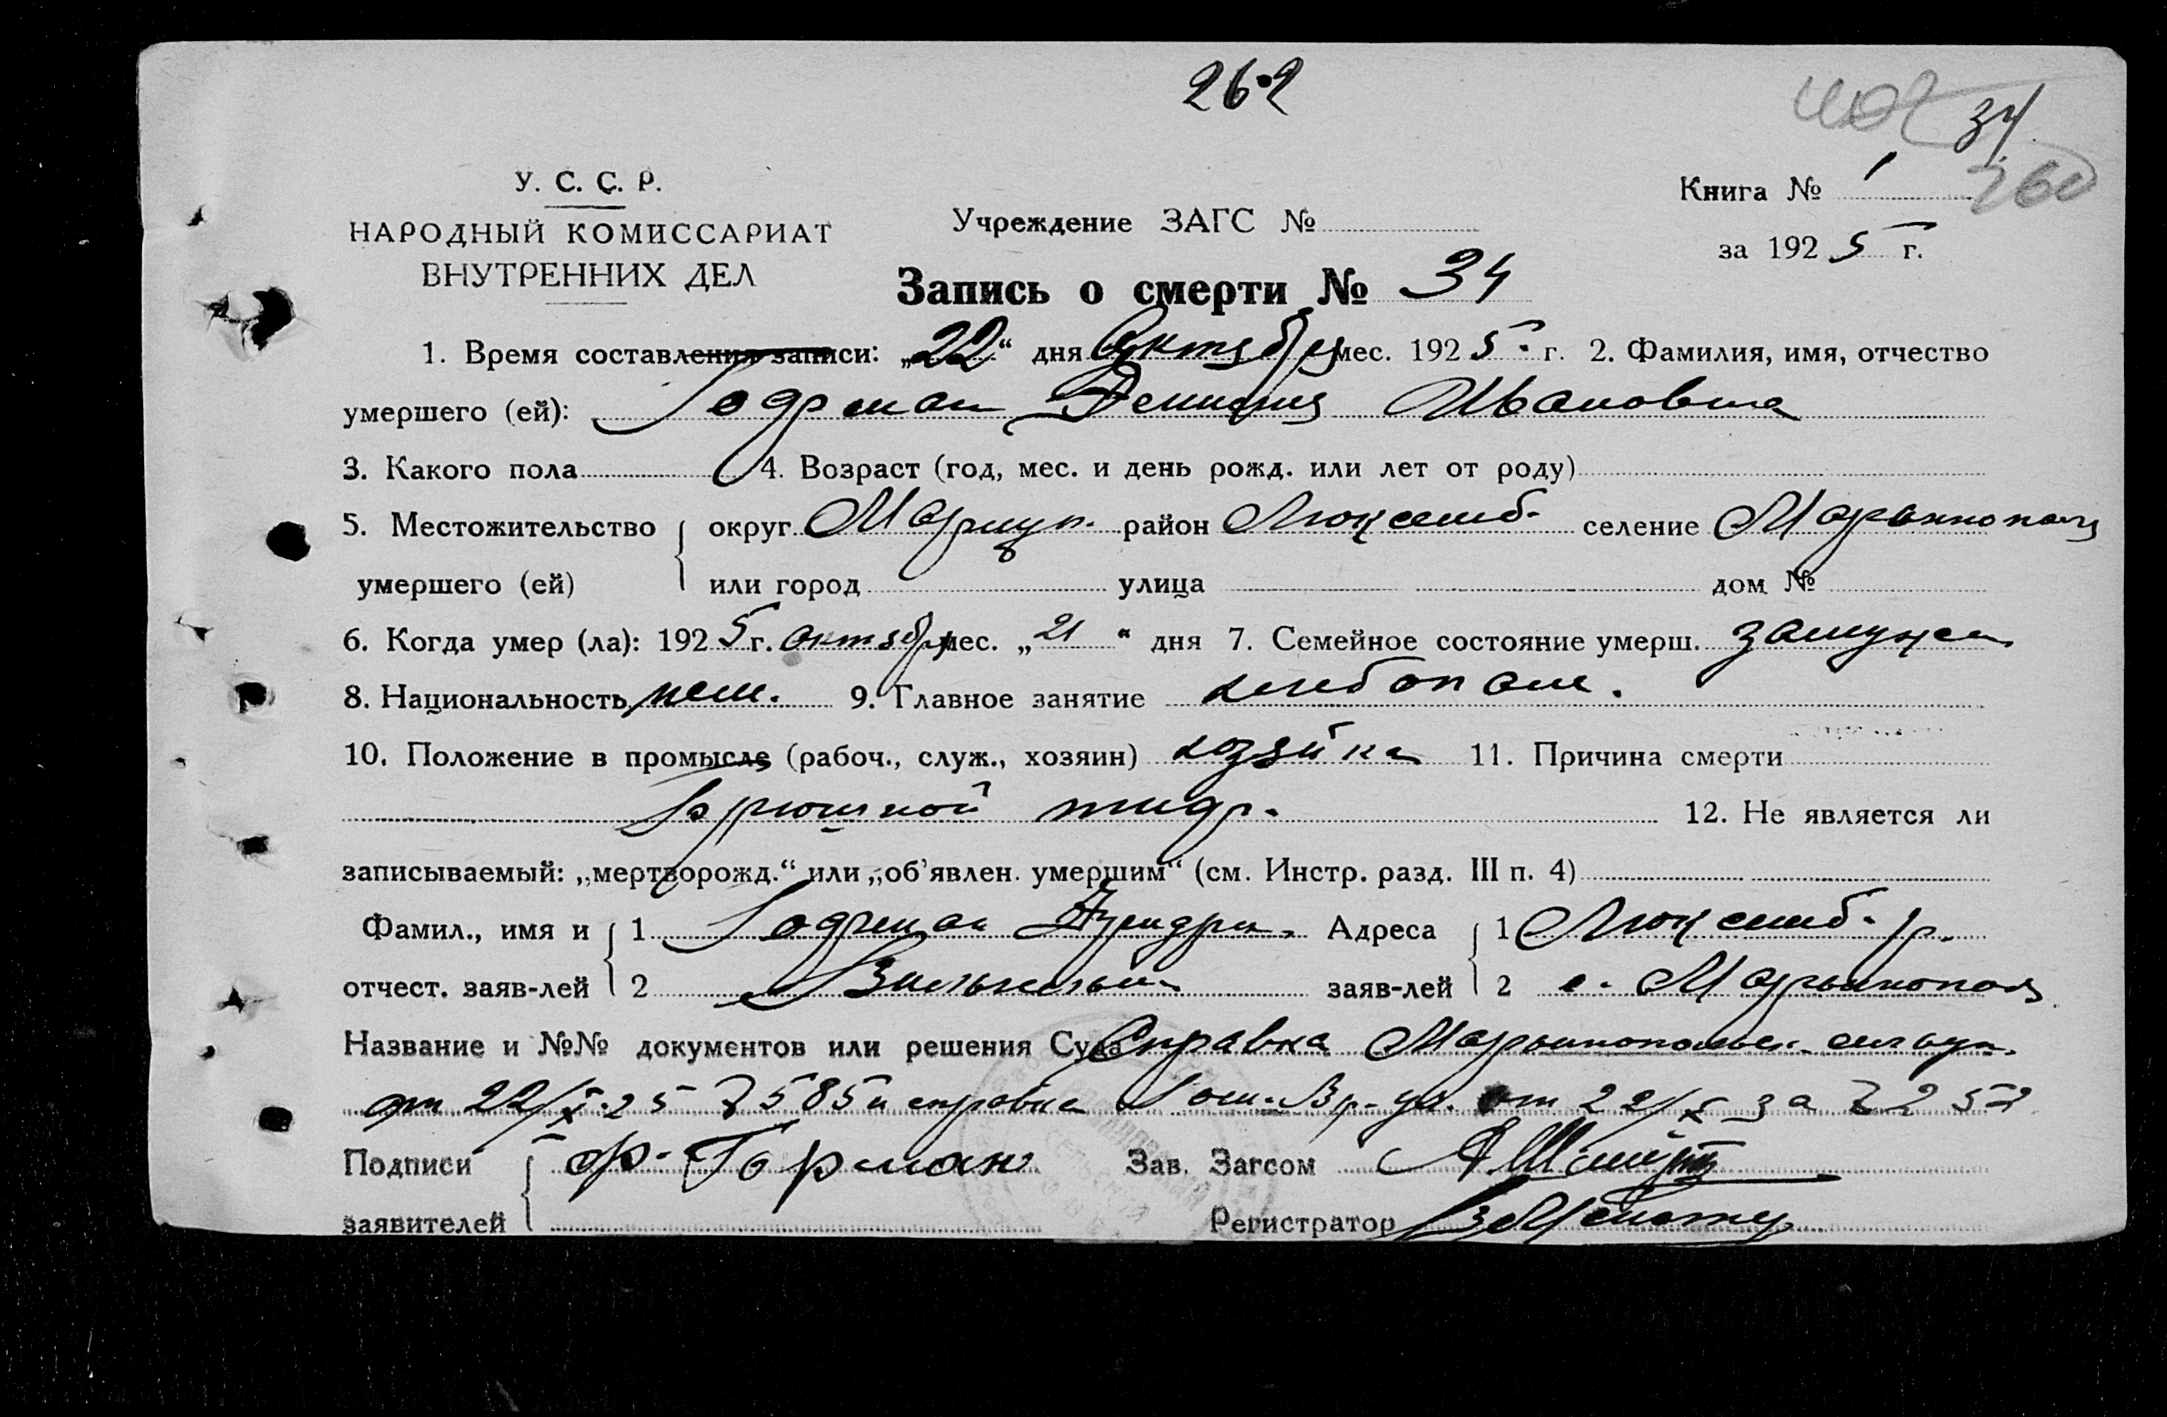 262
34
260
У. С. С. Р.
НАРОДНЫЙ КОМИССАРИАТ
ВНУТРЕННИХ ДЕЛ
Учреждение ЗАГС №
Книга № 1
за 1925 г.
Запись о смерти № 34
1. Время составления записи: „22“ дня Октября мес. 1925 г. 2. Фамилия, имя, отчество
умершего (ей): Ивановна
3. Какого пола 4. Возраст (год, мес. и день рожд. или лет от роду)
5. Местожительство округ Мариуп. район Люксемб. селение Марьинополь
умершего (ей) или город улица дом №
6. Когда умер (ла): 1925 г. октября мес. „21“ дня 7. Семейное состояние умерш. замужем
8. Национальность нем. 9. Главное занятие хлебопаш.
10. Положение в промысле (рабоч., служ., хозяин) хозяйка 11. Причина смерти
Брюшной тиф. 12. Не является ли
записываемый: „мертворожд.“ или „об’явлен. умершим“ (см. Инстр. разд. III п. 4)
Фамил., имя и 1 Адреса 1 Люксемб. р.
отчест. заяв-лей 2 заяв-лей 2 с. Марьинополь
Название и №№ документов или решения Суда Справка Марьинопольск.
от 22/X-25 585 и справка от 22/X за 252
Подписи Горман Зав. Загсом
заявителей Регистратор